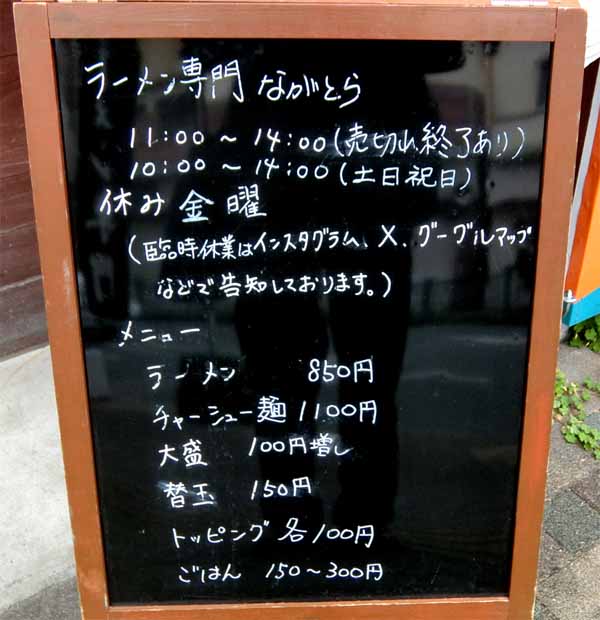 ラーメン専門 ながとら
11:00 ～ 14:00 (売切れ終了あり)
10:00 ～ 14:00 (土日祝日)
休み 金曜
(臨時休業はインスタグラム、X、グーグルマップ
などで告知しております。)
メニュー
ラーメン 850円
チャーシュー麺 1100円
大盛 100円増し
替玉 150円
トッピング 各100円
ごはん 150～300円